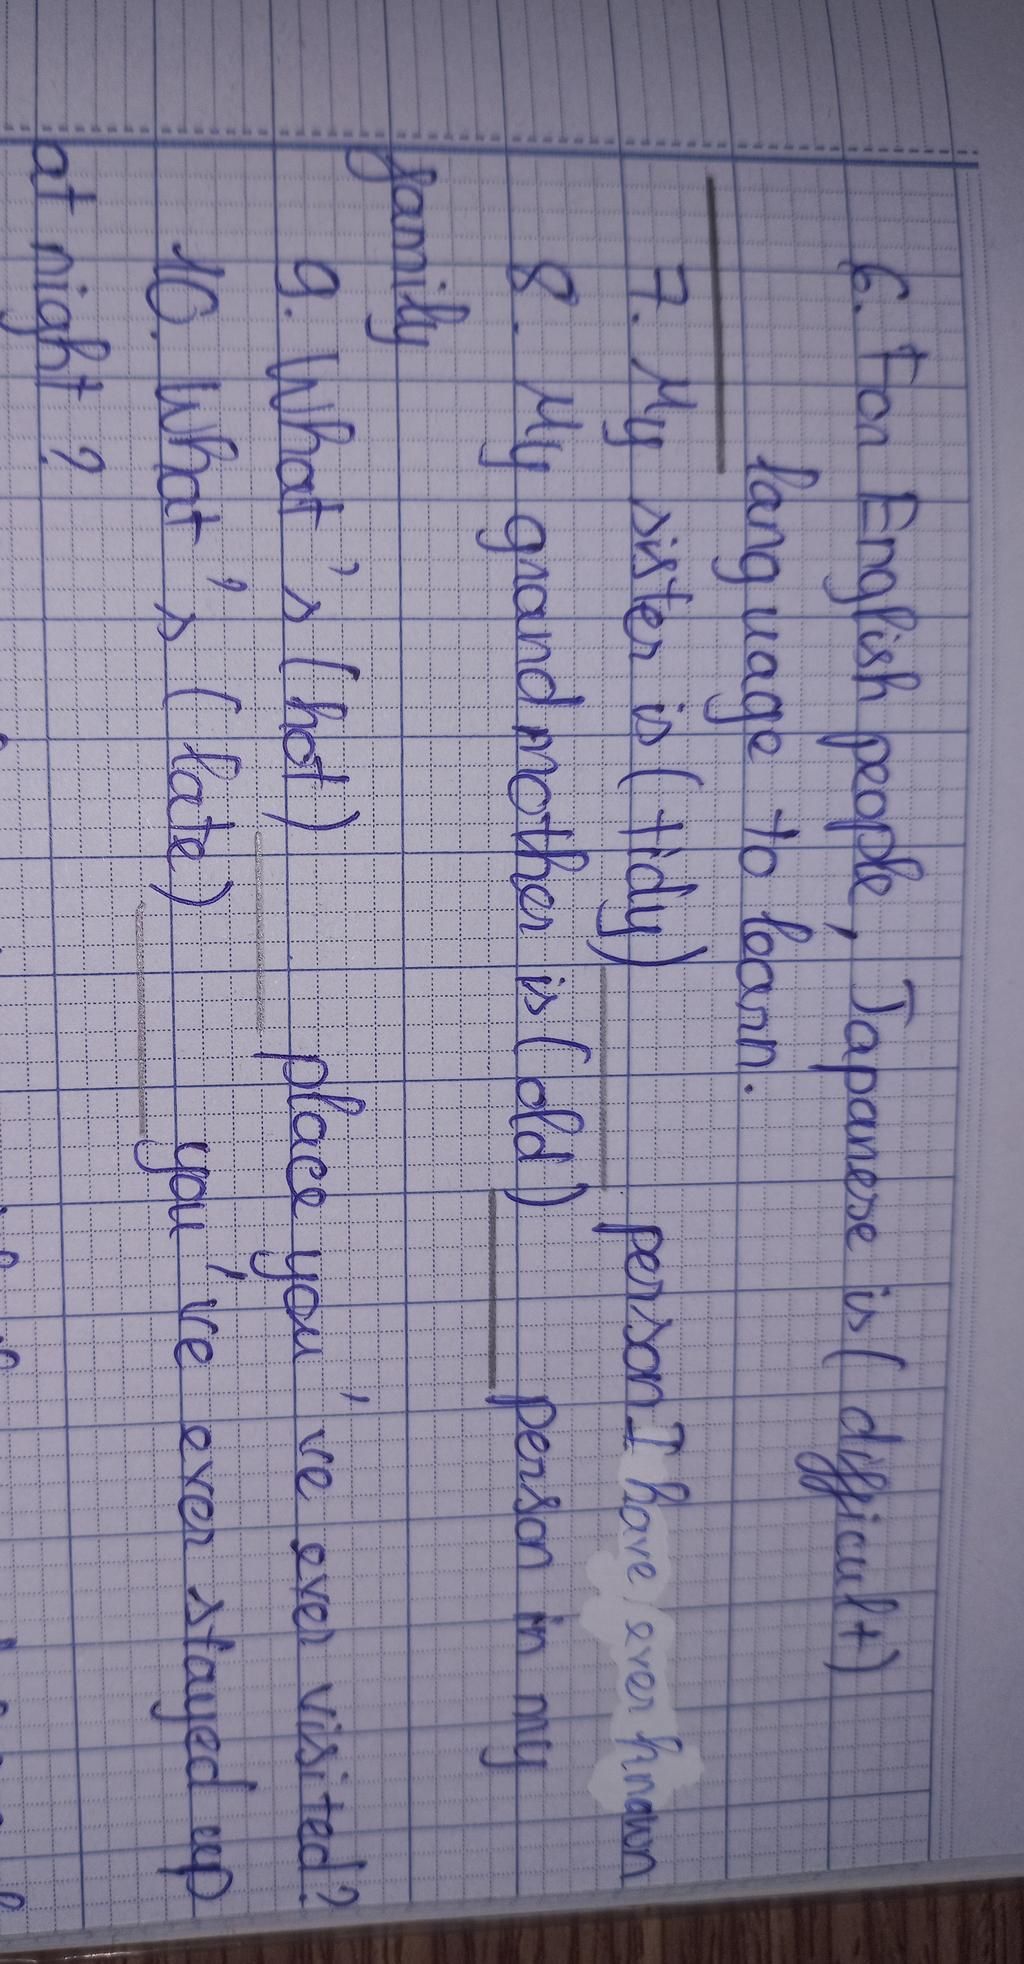 6. For English people, Japanese is ( difficult)
language to learn.
7. My sister is ( tidy) person I have ever known
8. My grandmother is ( old) person in my
family
9. What's ( hot) place you've ever visited?
10. What's ( late) you've ever stayed up
at night?